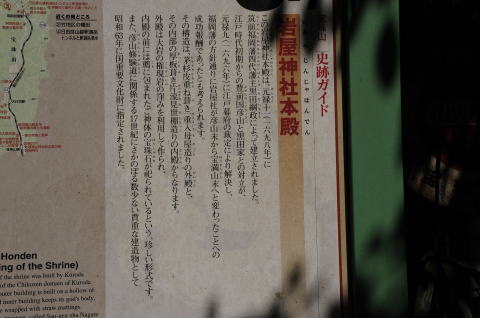 史跡ガイド
岩屋神社本殿
じんじゃほんでん
この岩屋神社本殿は、元禄十一(一六九八)年に
筑前福岡藩四代藩主黒田綱政によって建立されました。
江戸時代初期からの豊前国彦山と黒田家との対立が、
元禄九(一六九六)年に江戸幕府の裁定により解決し、
福岡藩の方針通りに岩屋社が彦山末から宝満山末へと変わったことへの
成功報酬であったとも考えられます。
その構造は、茅杉皮重ね葺き一重入母屋造りの外殿と、
その内部の厚板葺き一間流見世棚造りの内殿からなります。
外殿は大岩の権現岩の窪みを利用して作られ、
内殿の前には薦に包まれたご神体の宝珠石が祀られているという、珍しい形式です。
また、彦山修験道に関係する17世紀にさかのぼる数少ない貴重な建造物として
昭和63年に国重要文化財に指定されました。
近くの見どころ
Honden
ng of the Shrine)
of the shrine was built by Kuroda
of the Chikuzen domain of Kuroda
outer building is built on a hollow of
inner building keeps its god's body,
wrapped with straw mattings.